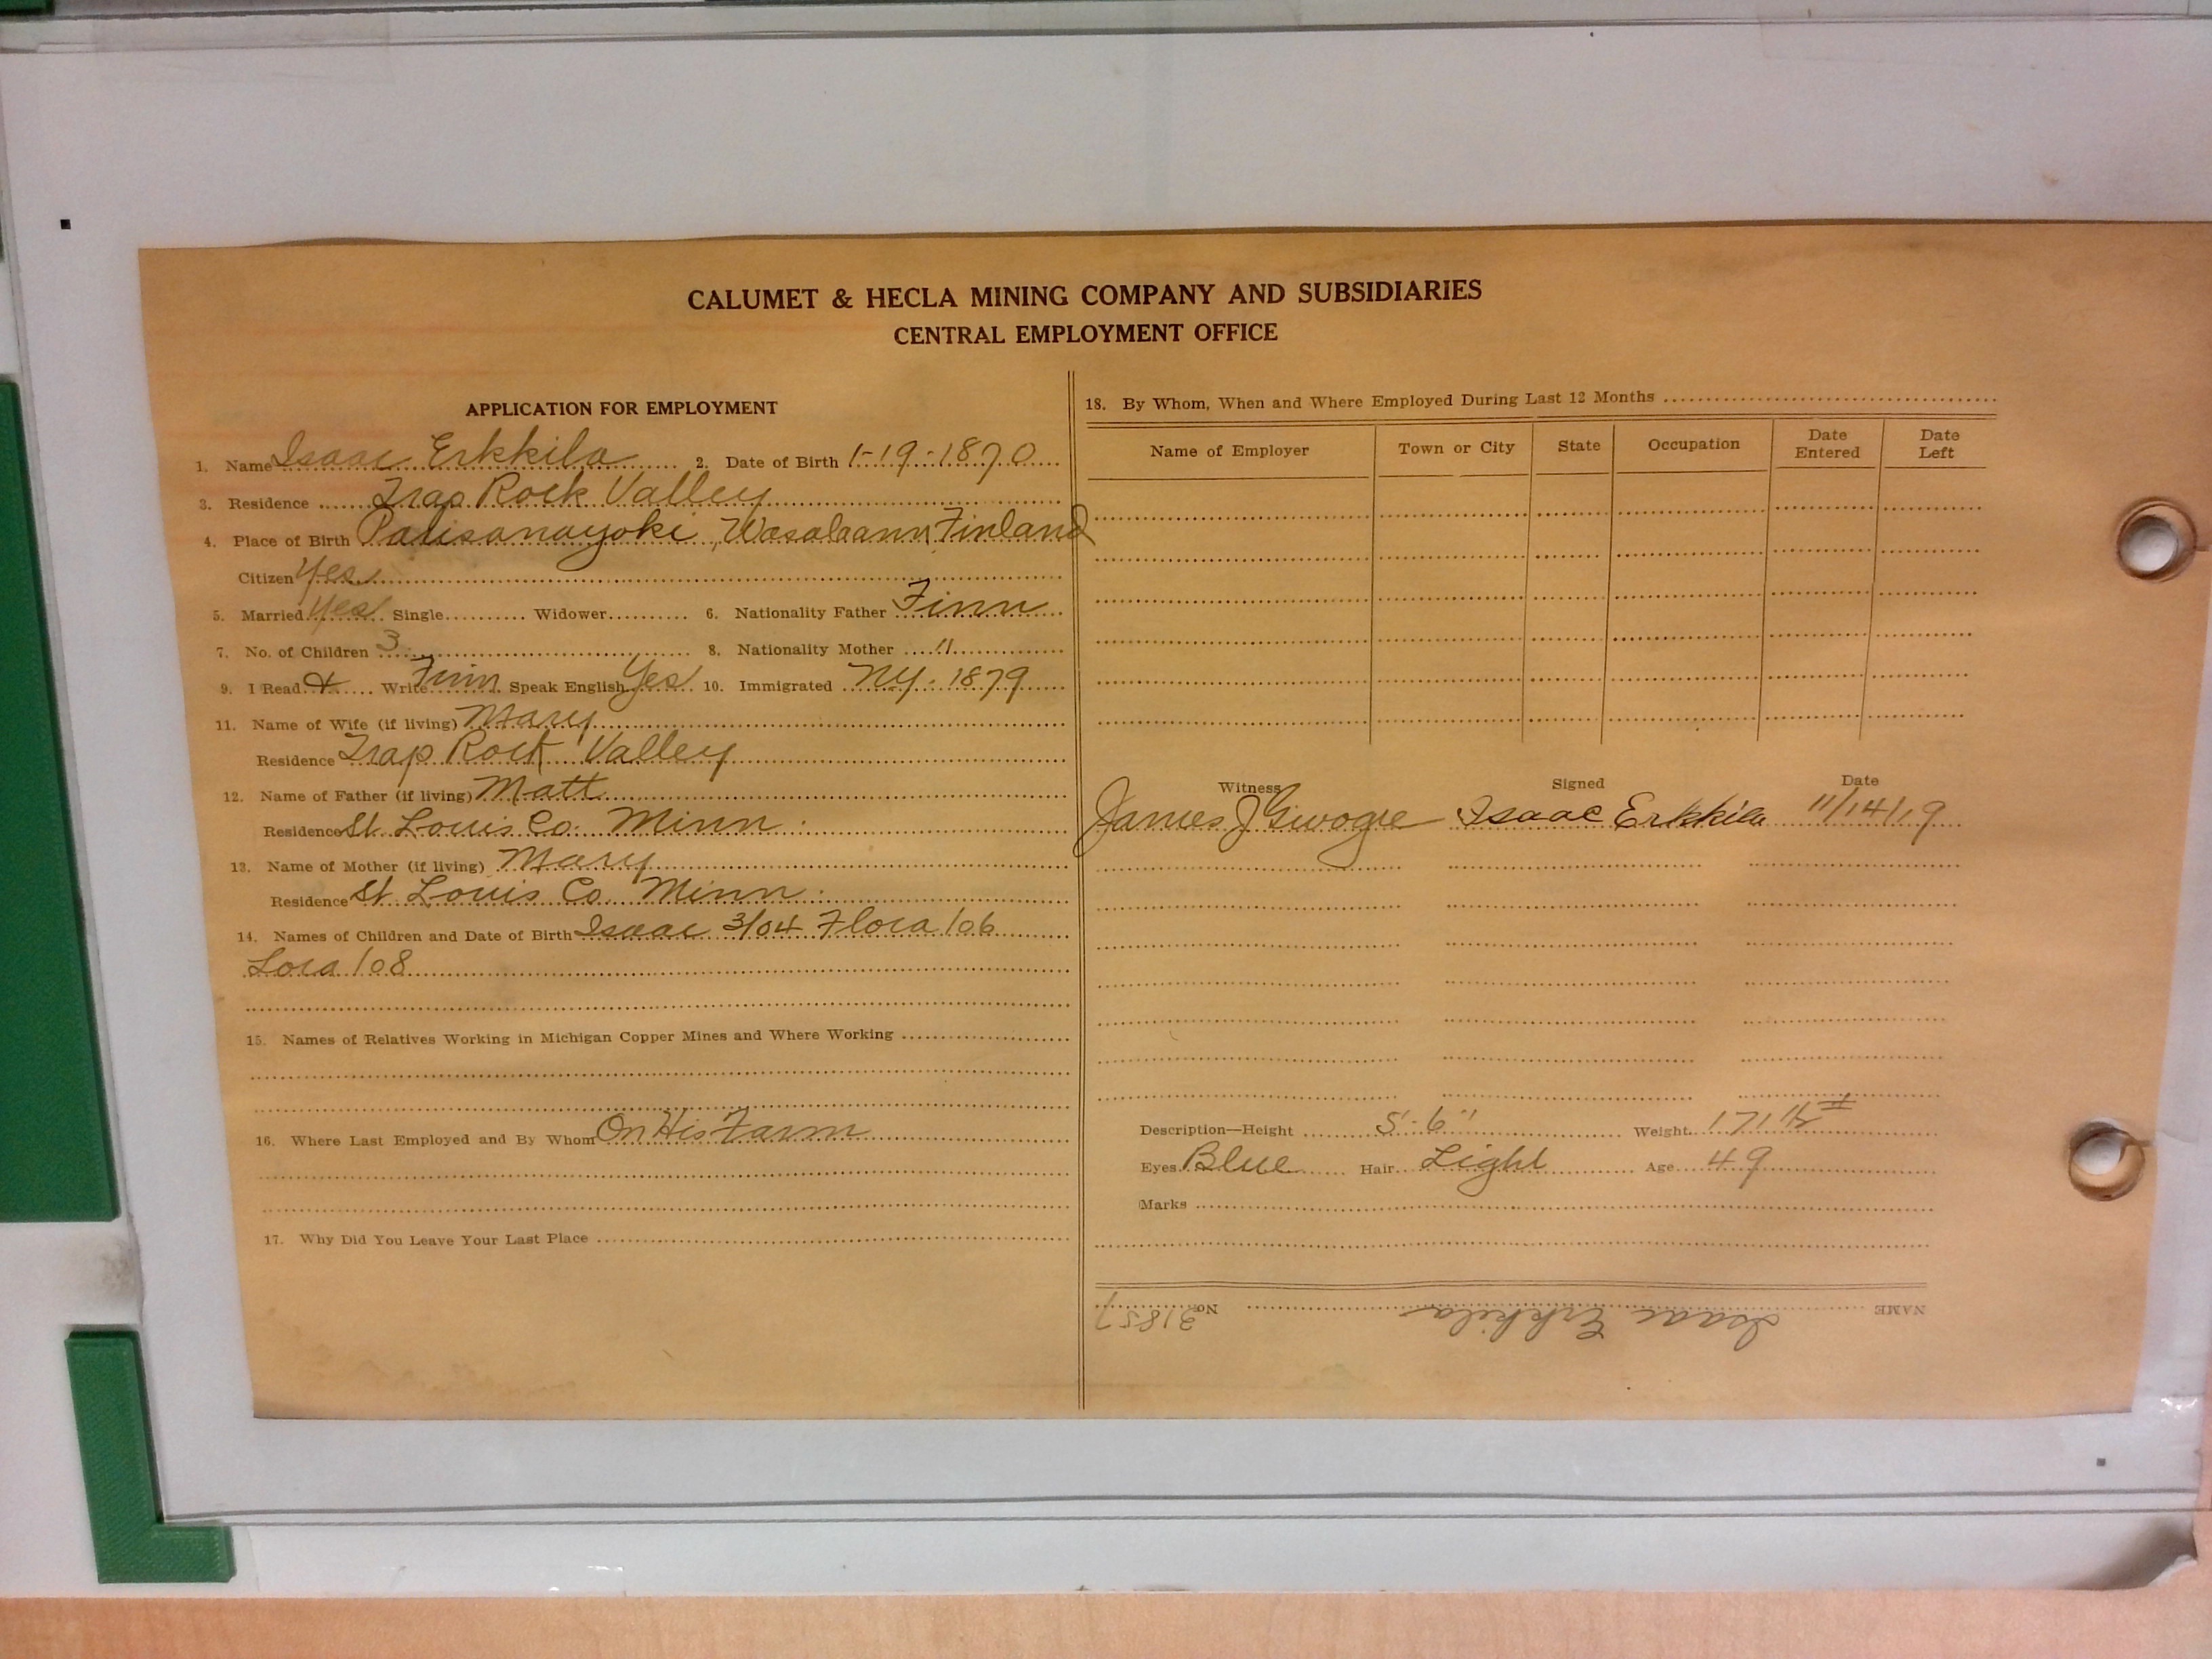 CALUMET & HECLA MINING COMPANY AND SUBSIDIARIES
CENTRAL EMPLOYMENT OFFICE
APPLICATION FOR EMPLOYMENT
1. Name Isaac Erkkila 2. Date of Birth 1-19-1870
3. Residence Trap Rock Valley
4. Place of Birth Finland
Citizen Yes
5. Married Yes Single Widower 6. Nationality Father Finn
7. No. of Children 3 8. Nationality Mother "
9. I Read & Write Finn Speak English Yes 10. Immigrated NY. 1879
11. Name of Wife (if living) Mary
Residence Trap Rock Valley
12. Name of Father (if living) Matt
Residence St. Louis Co. Minn.
13. Name of Mother (if living) Mary
Residence St. Louis Co. Minn.
14. Names of Children and Date of Birth Isaac 3/04 Flora /06
Lora /08
15. Names of Relatives Working in Michigan Copper Mines and Where Working
16. Where Last Employed and By Whom On His Farm
17. Why Did You Leave Your Last Place
18. By Whom, When and Where Employed During Last 12 Months
Name of Employer Town or City State Occupation Date Entered Date Left
Witness Signed Date
James J Isaac Erkkila 11/14/19
Description—Height 5'-6" Weight 171 1/2 #
Eyes Blue Hair Light Age 49
Marks
NAME Isaac Erkkila No. 31857